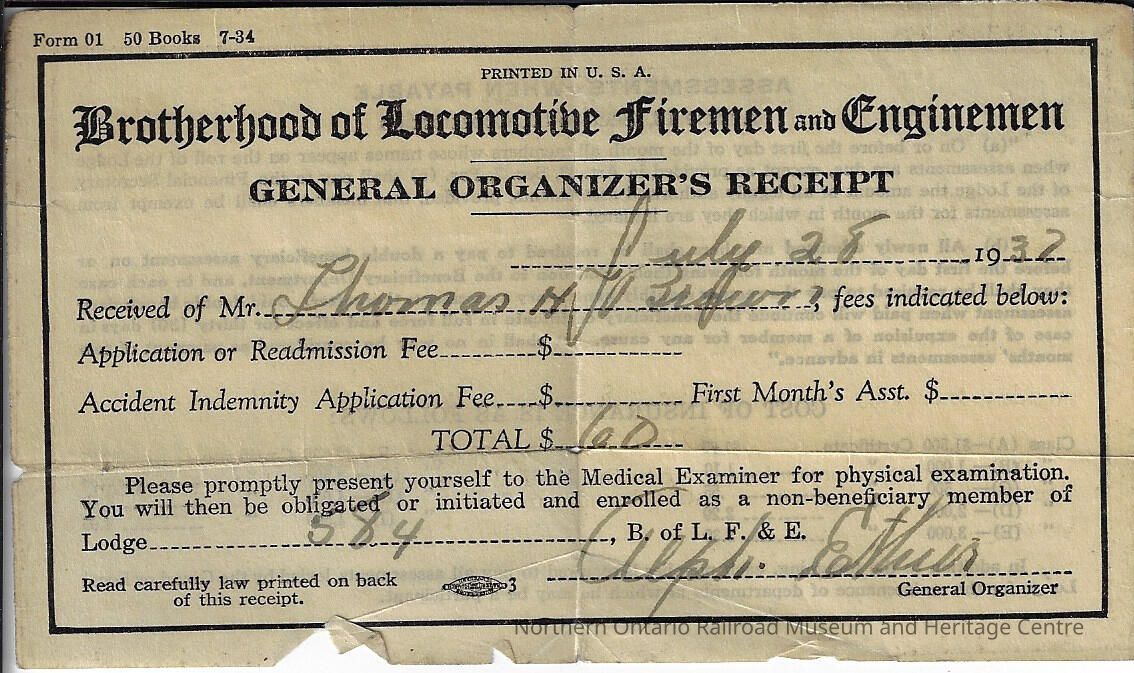 Form 01 50 Books 7-34
PRINTED IN U. S. A.
Brotherhood of Locomotive Firemen and Enginemen
GENERAL ORGANIZER'S RECEIPT
July 28 1937
Received of Mr. Thomas H Brown, fees indicated below:
Application or Readmission Fee $
Accident Indemnity Application Fee $ First Month's Asst. $
TOTAL $
Please promptly present yourself to the Medical Examiner for physical examination.
You will then be obligated or initiated and enrolled as a non-beneficiary member of
Lodge 584, B. of L. F. & E.
Alph.
Read carefully law printed on back
of this receipt.
3
General Organizer
Northern Ontario Railroad Museum and Heritage Centre